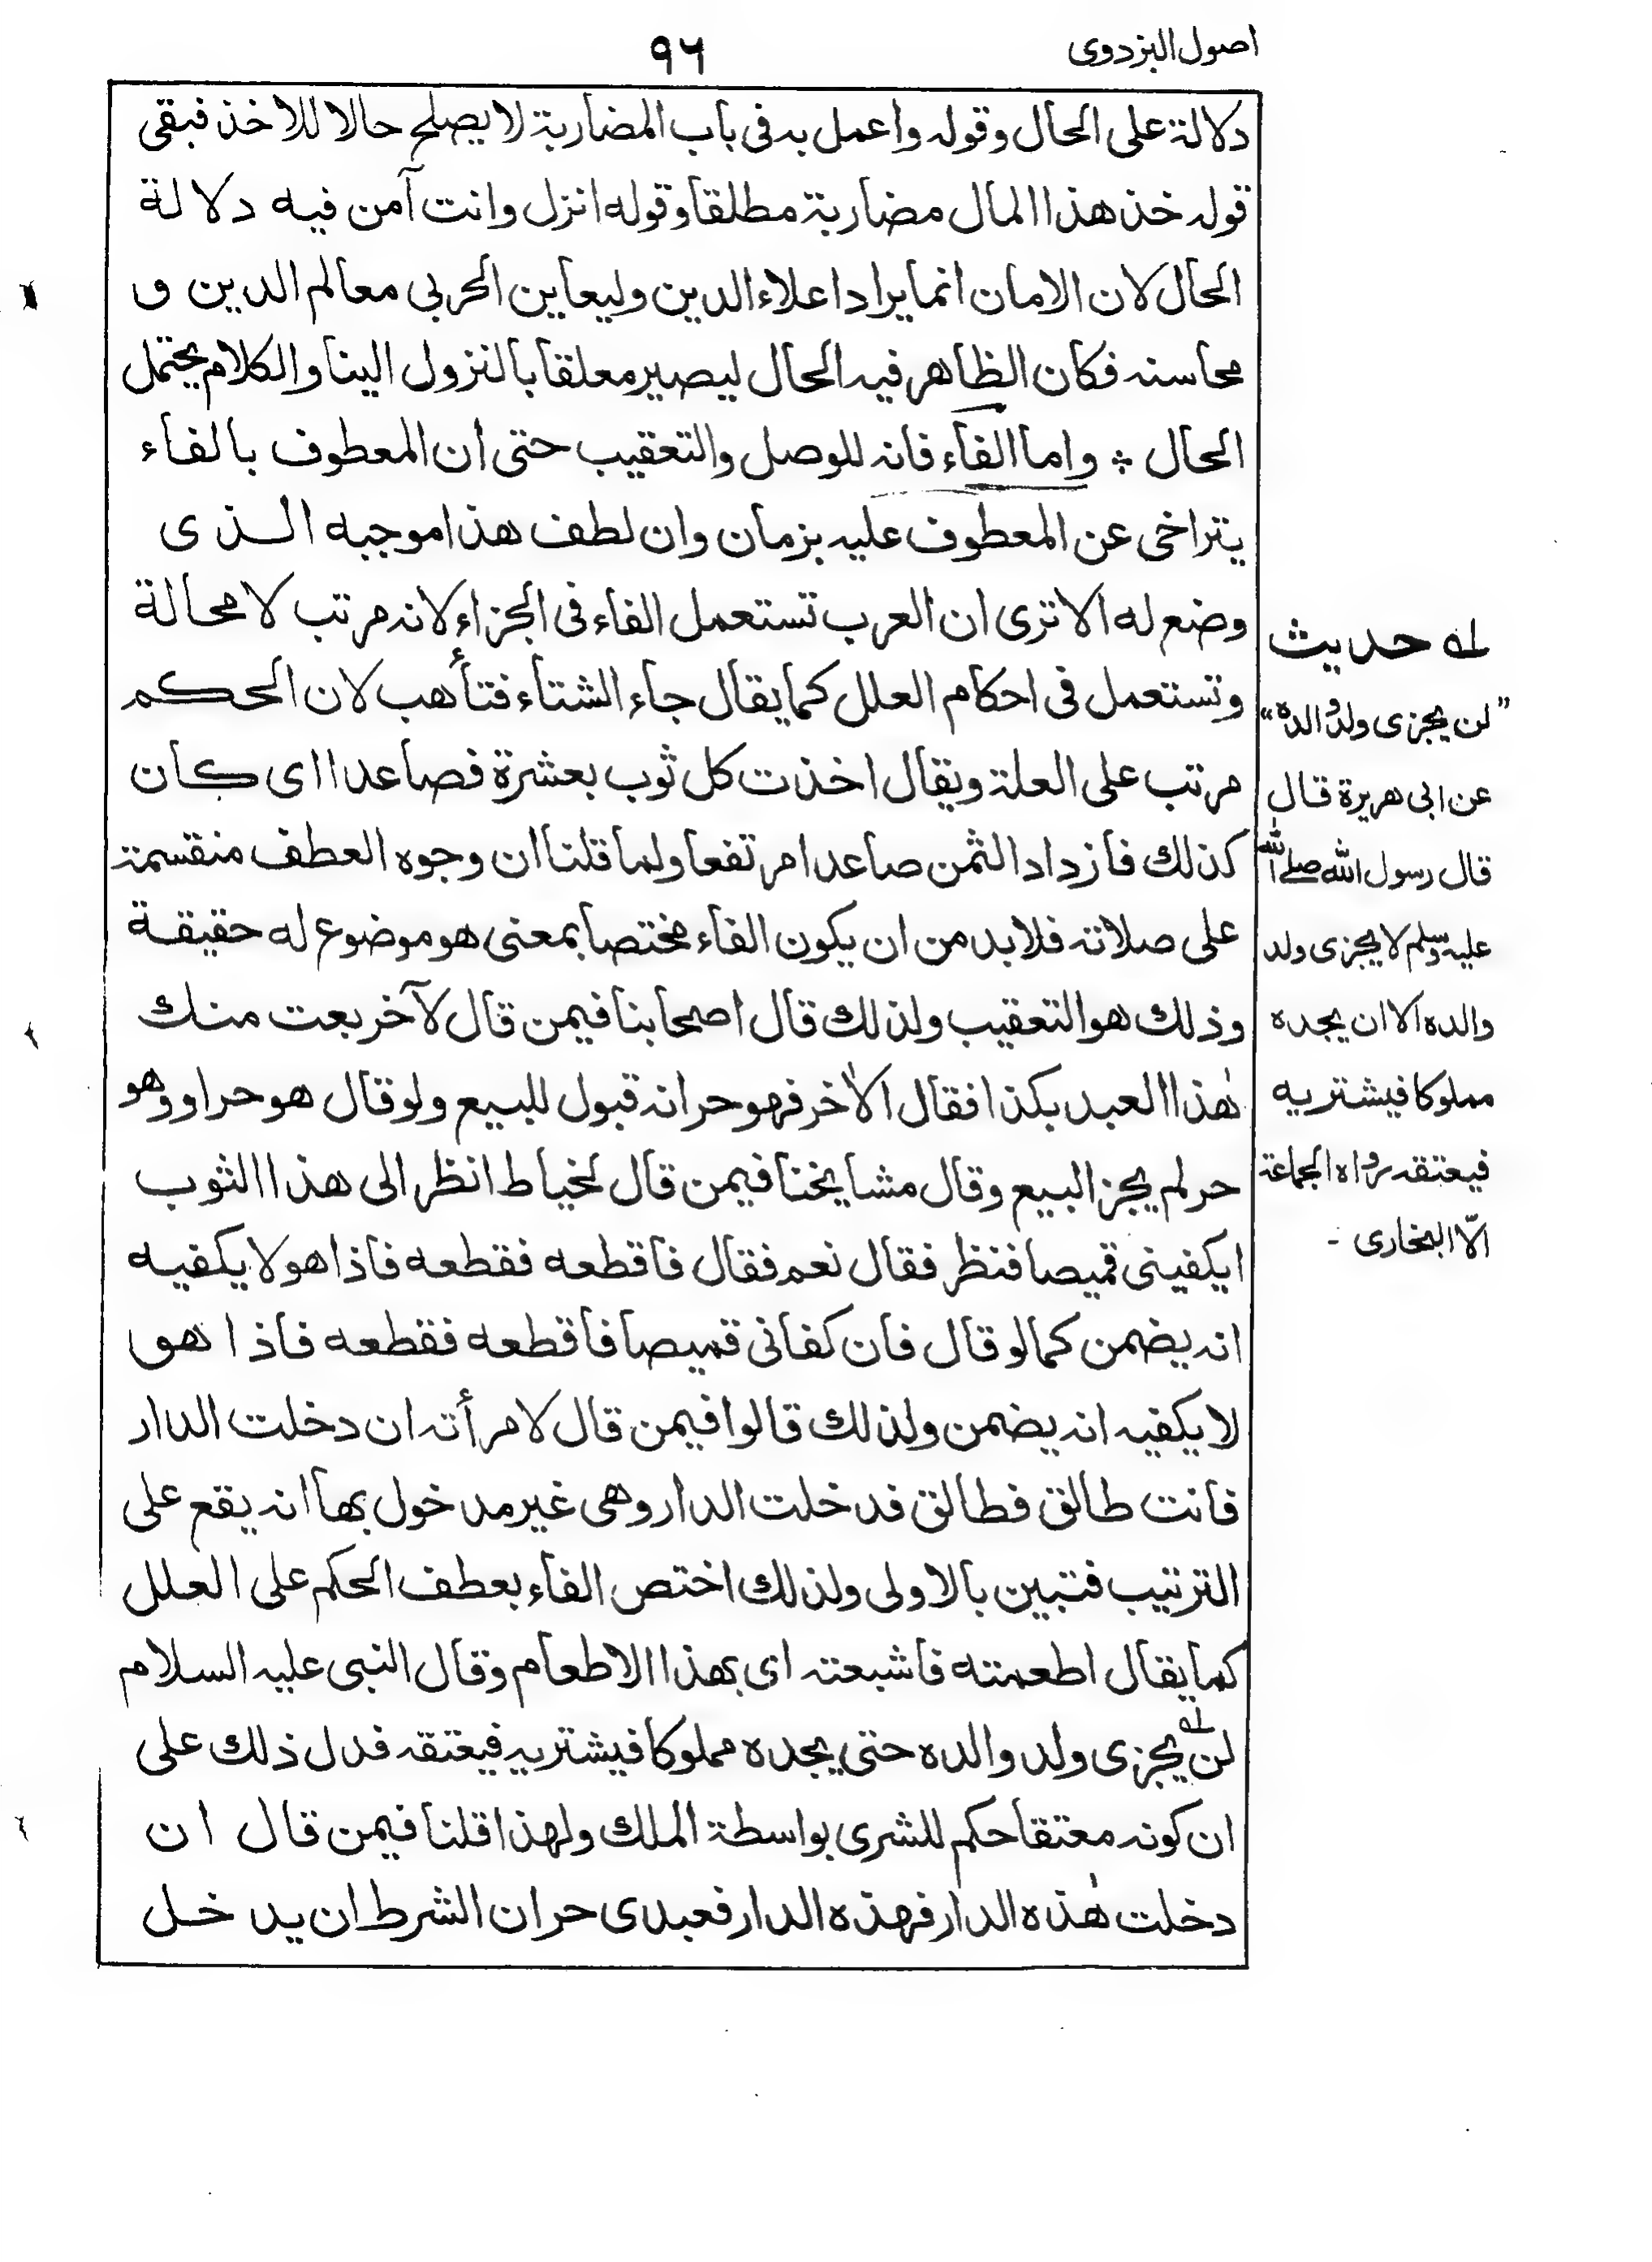 اصول البزدوی
٩٦
دلالة علی الحال وقوله واعمل به فی باب المضاربة لا یصلح حالا للاخذ فبقی
قوله خذ هذا المال مضاربة مطلقا وقوله انزل وانت آمن فیه دلالة
الحال لان الامان انما یراد اعلاء الدین ولیعاین الحربی معالم الدین و
محاسنه فکان الظاهر فیه الحال لیصیر معلقا بالنزول الینا والکلام یحتمل
الحال ٭ واما الفاء فانه للوصل والتعقیب حتی ان المعطوف بالفاء
یتراخی عن المعطوف علیه بزمان وان لطف هذا موجبه الذی
وضع له الا تری ان العرب تستعمل الفاء فی الجزاء لانه مرتب لا محالة
وتستعمل فی احکام العلل کما یقال جاء الشتاء فتأهب لان الحکم
مرتب علی العلة ویقال اخذت کل ثوب بعشرة فصاعدا ای کان
کذلك فازداد الثمن صاعدا مرتفعا ولما قلنا ان وجوه العطف منقسمة
علی صلاته فلا بد من ان یکون الفاء مختصا بمعنی هو موضوع له حقیقة
وذلك هو التعقیب ولذلك قال اصحابنا فیمن قال لآخر بعت منك
هٰذا العبد بکذا فقال الاٰخر فهو حر انه قبول للبیع ولو قال هو حر او وهو
حر لم یجز البیع وقال مشایخنا فیمن قال لخیاط انظر الی هذا الثوب
ایکفینی قمیصا فنظر فقال نعم فقال فاقطعه فقطعه فاذا هو لا یکفیه
انه یضمن کما لو قال فان کفانی قمیصا فاقطعه فقطعه فاذا هو
لا یکفیه انه یضمن ولذلك قالوا فیمن قال لامرأته ان دخلت الدار
فانت طالق فطالق فدخلت الدار وهی غیر مدخول بها انه یقع علی
الترتیب فتبین بالاولی ولذلك اختص الفاء بعطف الحکم علی العلل
کما یقال اطعمته فاشبعته ای بهذا الاطعام وقال النبی علیه السلام
لن یجزی ولد والده حتی یجده مملوکا فیشتریه فیعتقه فدل ذلك علی
ان کونه معتقا حکم للشری بواسطة الملك ولهذا قلنا فیمن قال ان
دخلت هٰذه الدار فهذه الدار فعبدی حر ان الشرط ان یدخل
لہ حدیث
"لن یجزی ولد والده"
عن ابی هریرة قال
قال رسول الله صلی الله
علیه وسلم لا یجزی ولد
والده الا ان یجده
مملوکا فیشتریه
فیعتقه رواه الجماعة
الّا البخاری -